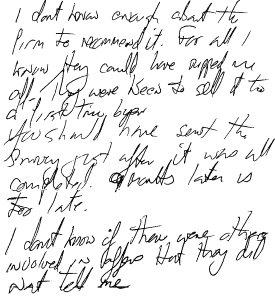 I dont know enough about the
firm to recommend it. For all I
know they could have ripped me
off. They were keen to sell it to
a first time buyer
You should have sent the
Survey just after it was all
completed. months later is
too late.
I dont know if there were others
involved in offers that they did
not tell me